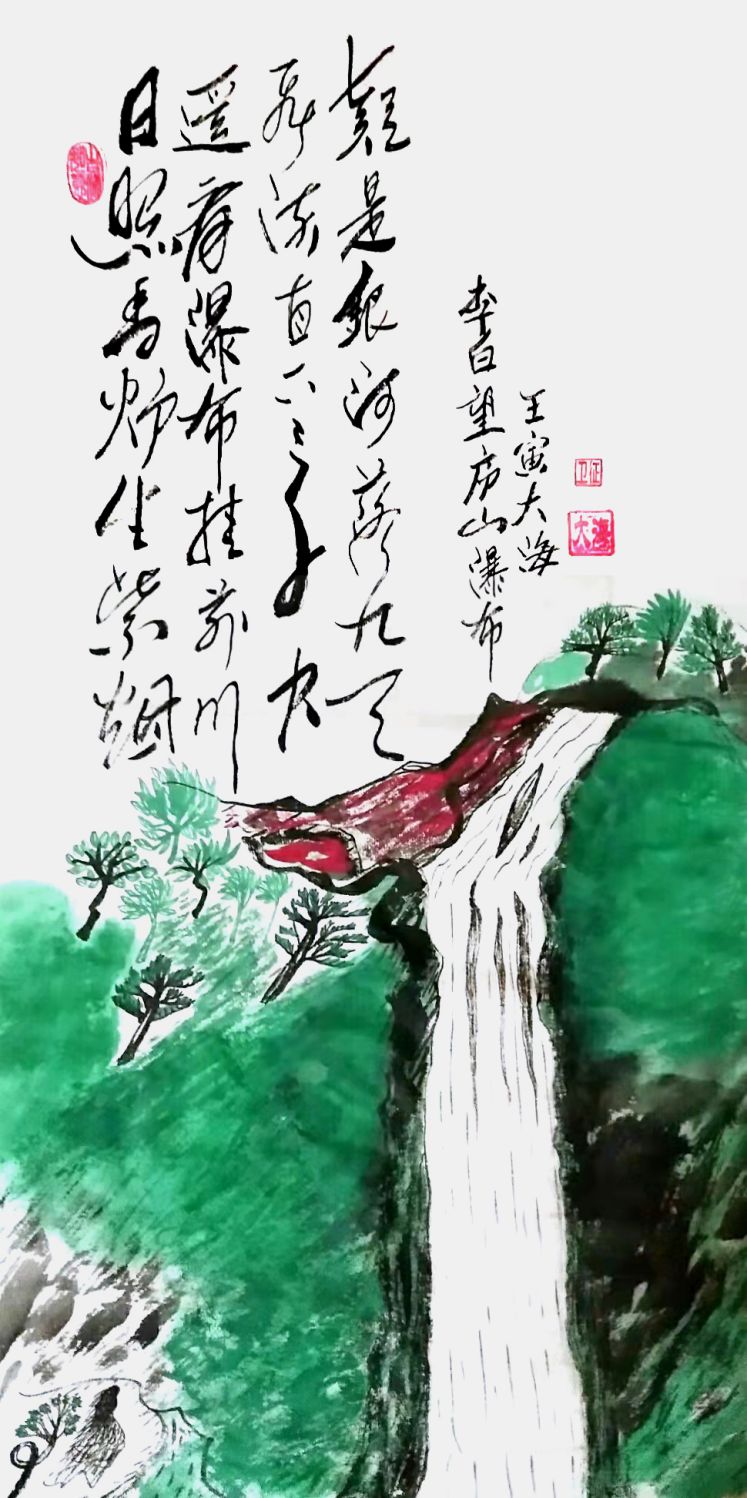 日照香炉生紫烟
遥看瀑布挂前川
飞流直下三千尺
疑是银河落九天
李白望庐山瀑布
壬寅大海
大海